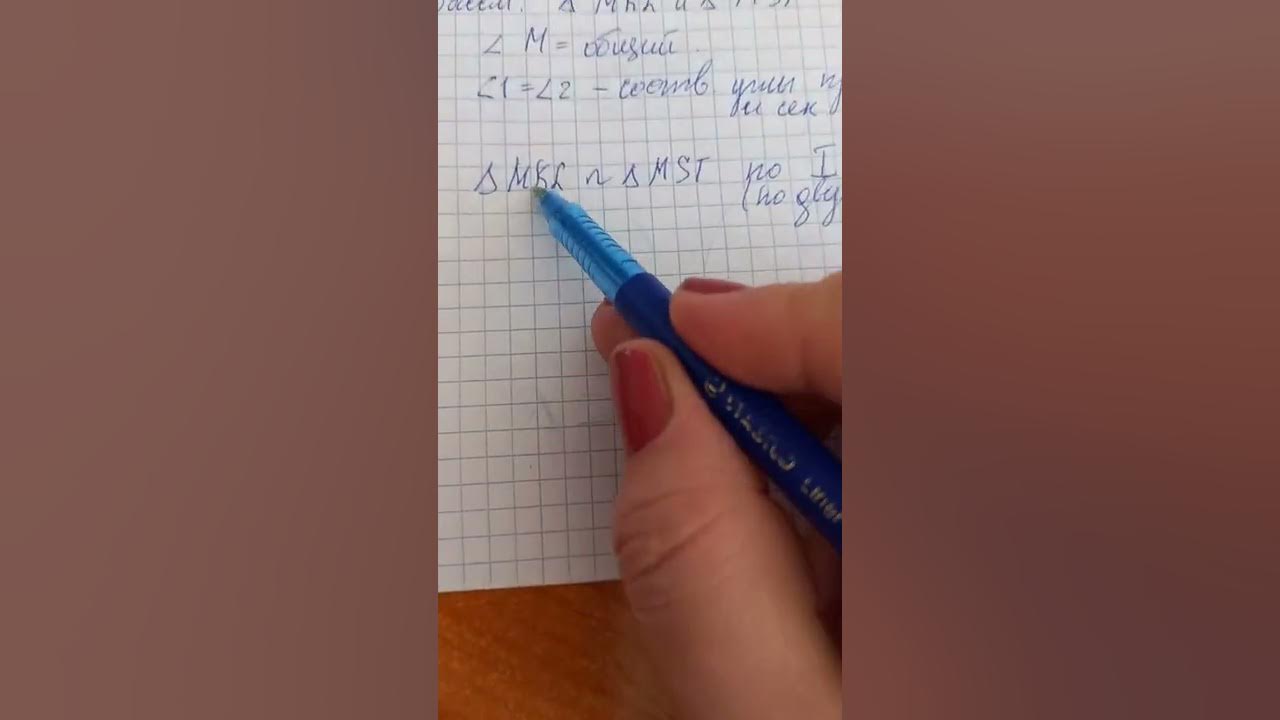 Δ MKL и Δ MST
∠ M = общий.
∠1 = ∠2 – соотв углы
и сек
Δ MKL ~ Δ MST по I
(по дву
STAEDTLER